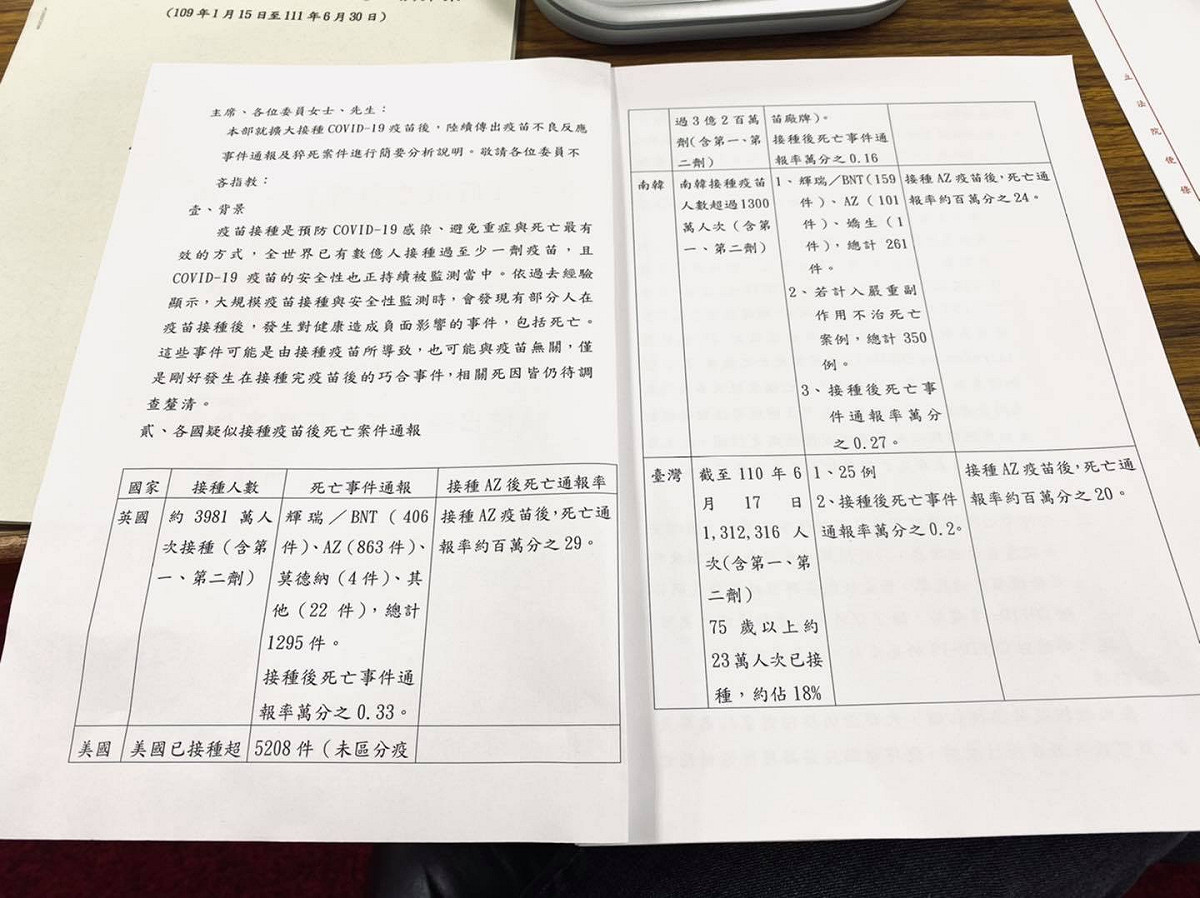 （109年1月15日至111年6月30日）
主席、各位委員女士、先生：
本部就擴大接種COVID-19疫苗後，陸續傳出疫苗不良反應
事件通報及猝死案件進行簡要分析說明。敬請各位委員不
吝指教：
壹、背景
疫苗接種是預防COVID-19感染、避免重症與死亡最有
效的方式，全世界已有數億人接種過至少一劑疫苗，且
COVID-19 疫苗的安全性也正持續被監測當中。依過去經驗
顯示，大規模疫苗接種與安全性監測時，會發現有部分人在
疫苗接種後，發生對健康造成負面影響的事件，包括死亡。
這些事件可能是由接種疫苗所導致，也可能與疫苗無關，僅
是剛好發生在接種完疫苗後的巧合事件，相關死因皆仍待調
查釐清。
貳、各國疑似接種疫苗後死亡案件通報
國家 接種人數 死亡事件通報 接種AZ後死亡通報率
英國 約 3981 萬人 輝瑞／BNT（406 接種AZ疫苗後，死亡通
次接種（含第 件）、AZ（863件）、 報率約百萬分之29。
一、第二劑） 莫德納（4件）、其
他（22 件），總計
1295 件。
接種後死亡事件通
報率萬分之0.33。
美國 美國已接種超 5208 件（未區分疫
過3億2百萬 苗廠牌）。
劑(含第一、第 接種後死亡事件通
二劑） 報率萬分之0.16
南韓 南韓接種疫苗 1、輝瑞／BNT(159 接種AZ疫苗後，死亡通
人數超過1300 件）、AZ（101 報率約百萬分之24。
萬人次（含第 件）、嬌生（1
一、第二劑） 件），總計 261
件。
2、若計入嚴重副
作用不治死亡
案例，總計350
例。
3、接種後死亡事
件通報率萬分
之0.27。
臺灣 截至 110 年 6 1、25例 接種AZ疫苗後，死亡通
月 17 日 2、接種後死亡事件 報率約百萬分之20。
1,312,316 人 通報率萬分之0.2。
次(含第一、第
二劑）
75 歲以上約
23萬人次已接
種，約佔18%
立法院便條